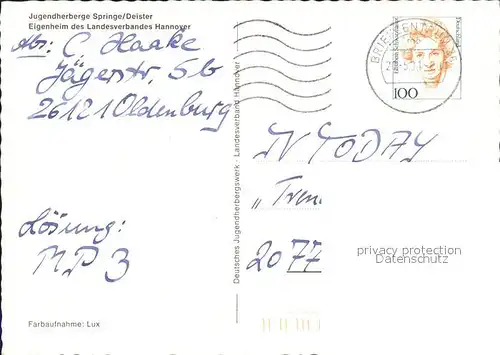 Jugendherberge Springe/Deister
Eigenheim des Landesverbandes Hannover
Abs: C. Haake
Jägerstr. 5b
26121 Oldenburg
Lösung:
MP 3
Farbaufnahme: Lux
Deutsches Jugendherbergswerk · Landesverband Hannover
BRIEFZENTRUM
100
TV TODAY
"Tren
2077
privacy protection
Datenschutz